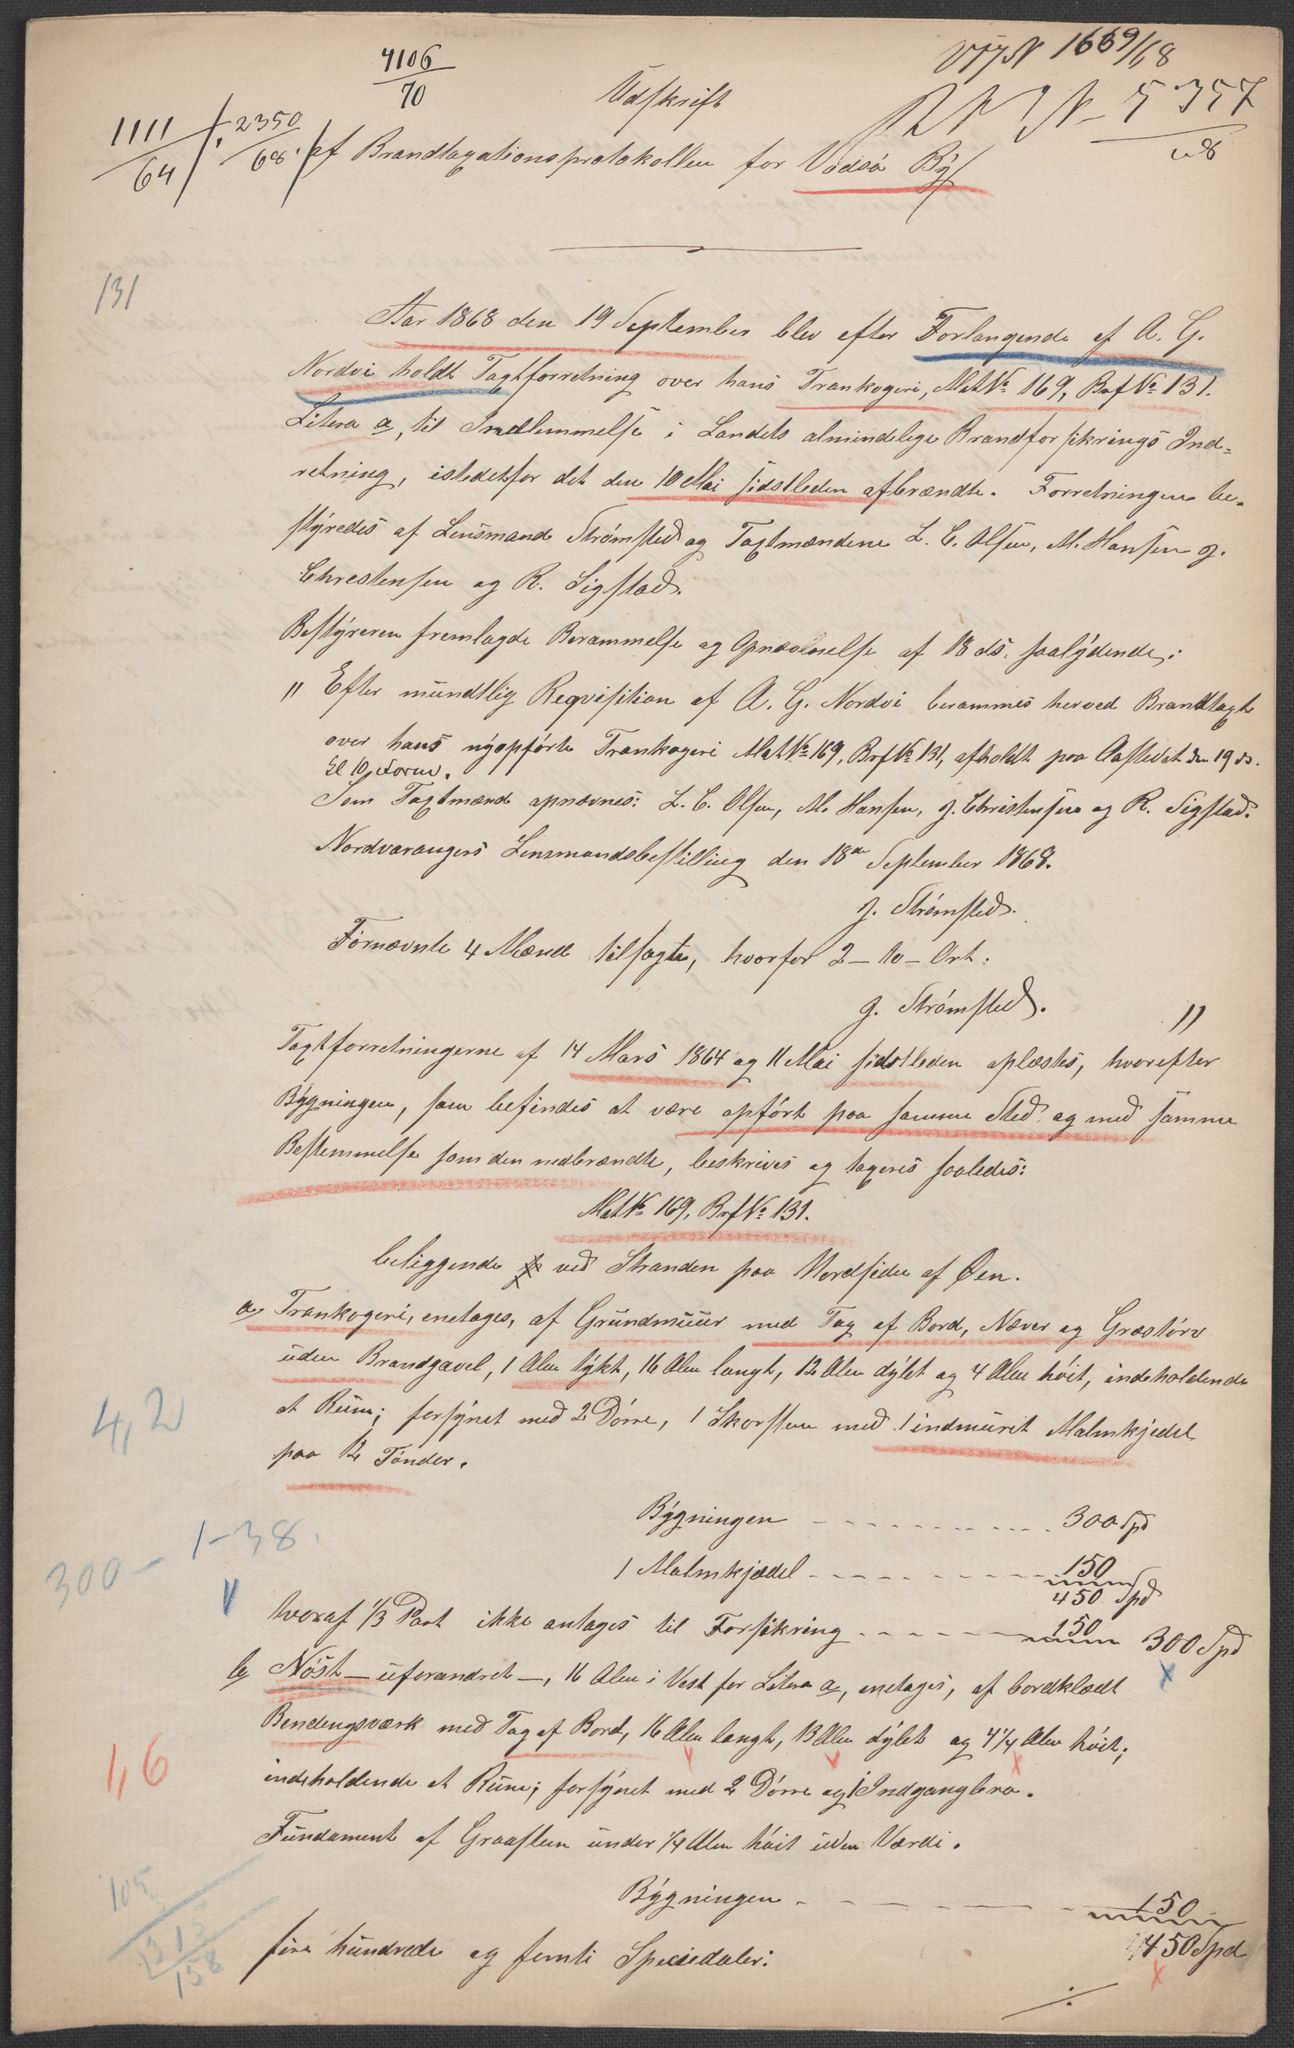 4106
70
Udskrift
1669/68
5357
68
1111
64
2350
68
af Brandtaxationsprotokollen for Vadsø By
131
Aar 1868 den 19 September blev efter Forlangende af A. G.
Nordvi holdt Taxtforretning over hans Trankogeri, Mat№ 169, Brf№ 131.
Litera a, til Indlemmelse i Landets almindelige Brandforsikrings Ind-
retning, istedetfor det den 10 Mai sidstleden afbrændte. Forretningen be-
styredes af Lensmand Strømsted og Taxtmændene L. C. Olsen, M. Hansen J.
Christensen og R. Sigstad.
Bestyreren fremlagde Berammelse og Opnævnelse af 18 ds. saalydende:
" Efter mundtlig Reqvisition af A. G. Nordvi berammes herved Brandtaxt
over hans nyopførte Trankogeri Mat№ 169, Brf№ 131, afholdt paa Aastedet den 19 ds.
Kl 10 Form.
Som Taxtmænd opnævnes: L. C. Olsen, M. Hansen, J. Christensen og R. Sigstad.
Nordvarangers Lensmandsbestilling den 18de September 1868.
J. Strømsted.
Fornævnte 4 Mænd tilsagte, hvorfor 2 - 10 - Ort.
J. Strømsted. "
Taxtforretningerne af 14 Mars 1864 og 11 Mai sidstleden oplæstes, hvorefter
Bygningen, som befindes at være opført paa samme Sted og med samme
Bestemmelse som den nedbrændte, beskrives og taxeres saaledes:
Mat№ 169, Brf№ 131.
beliggende ved Stranden paa Nordsiden af Øen.
a, Trankogeri, enetages, af Grundmuur med Tag af Bord, Næver og Græstørv
uden Brandgavel, 1 Alen tykt, 16 Alen langt, 12 Alen dybt og 4 Alen høit, indeholdende
et Rum; forsynet med 2 Dørre, 1 Skorsten med 1 indmuret Malmkjedel
paa 12 Tønder.
4,2
Bygningen 300 Spd
300 - 1-38.
1 Malmkjædel 150
450 Spd
hvoraf 1/3 Part ikke antages til Forsikring 150 300 Spd
b, Nøst - uforandret -, 16 Alen i Vest for Litera a, enetages, af bordklædt
Bendingsværk med Tag af Bord, 16 Alen langt, 13 Alen dybt og 4 1/4 Alen høit;
1,6
indeholdende et Rum; forsynet med 2 Dørre og 1 Indgangbro.
Fundament af Graasteen under 1/4 Alen høit uden Værdi.
105
3
1315
158
Bygningen 150
fire hundrede og femti Speciedaler: 450 Spd